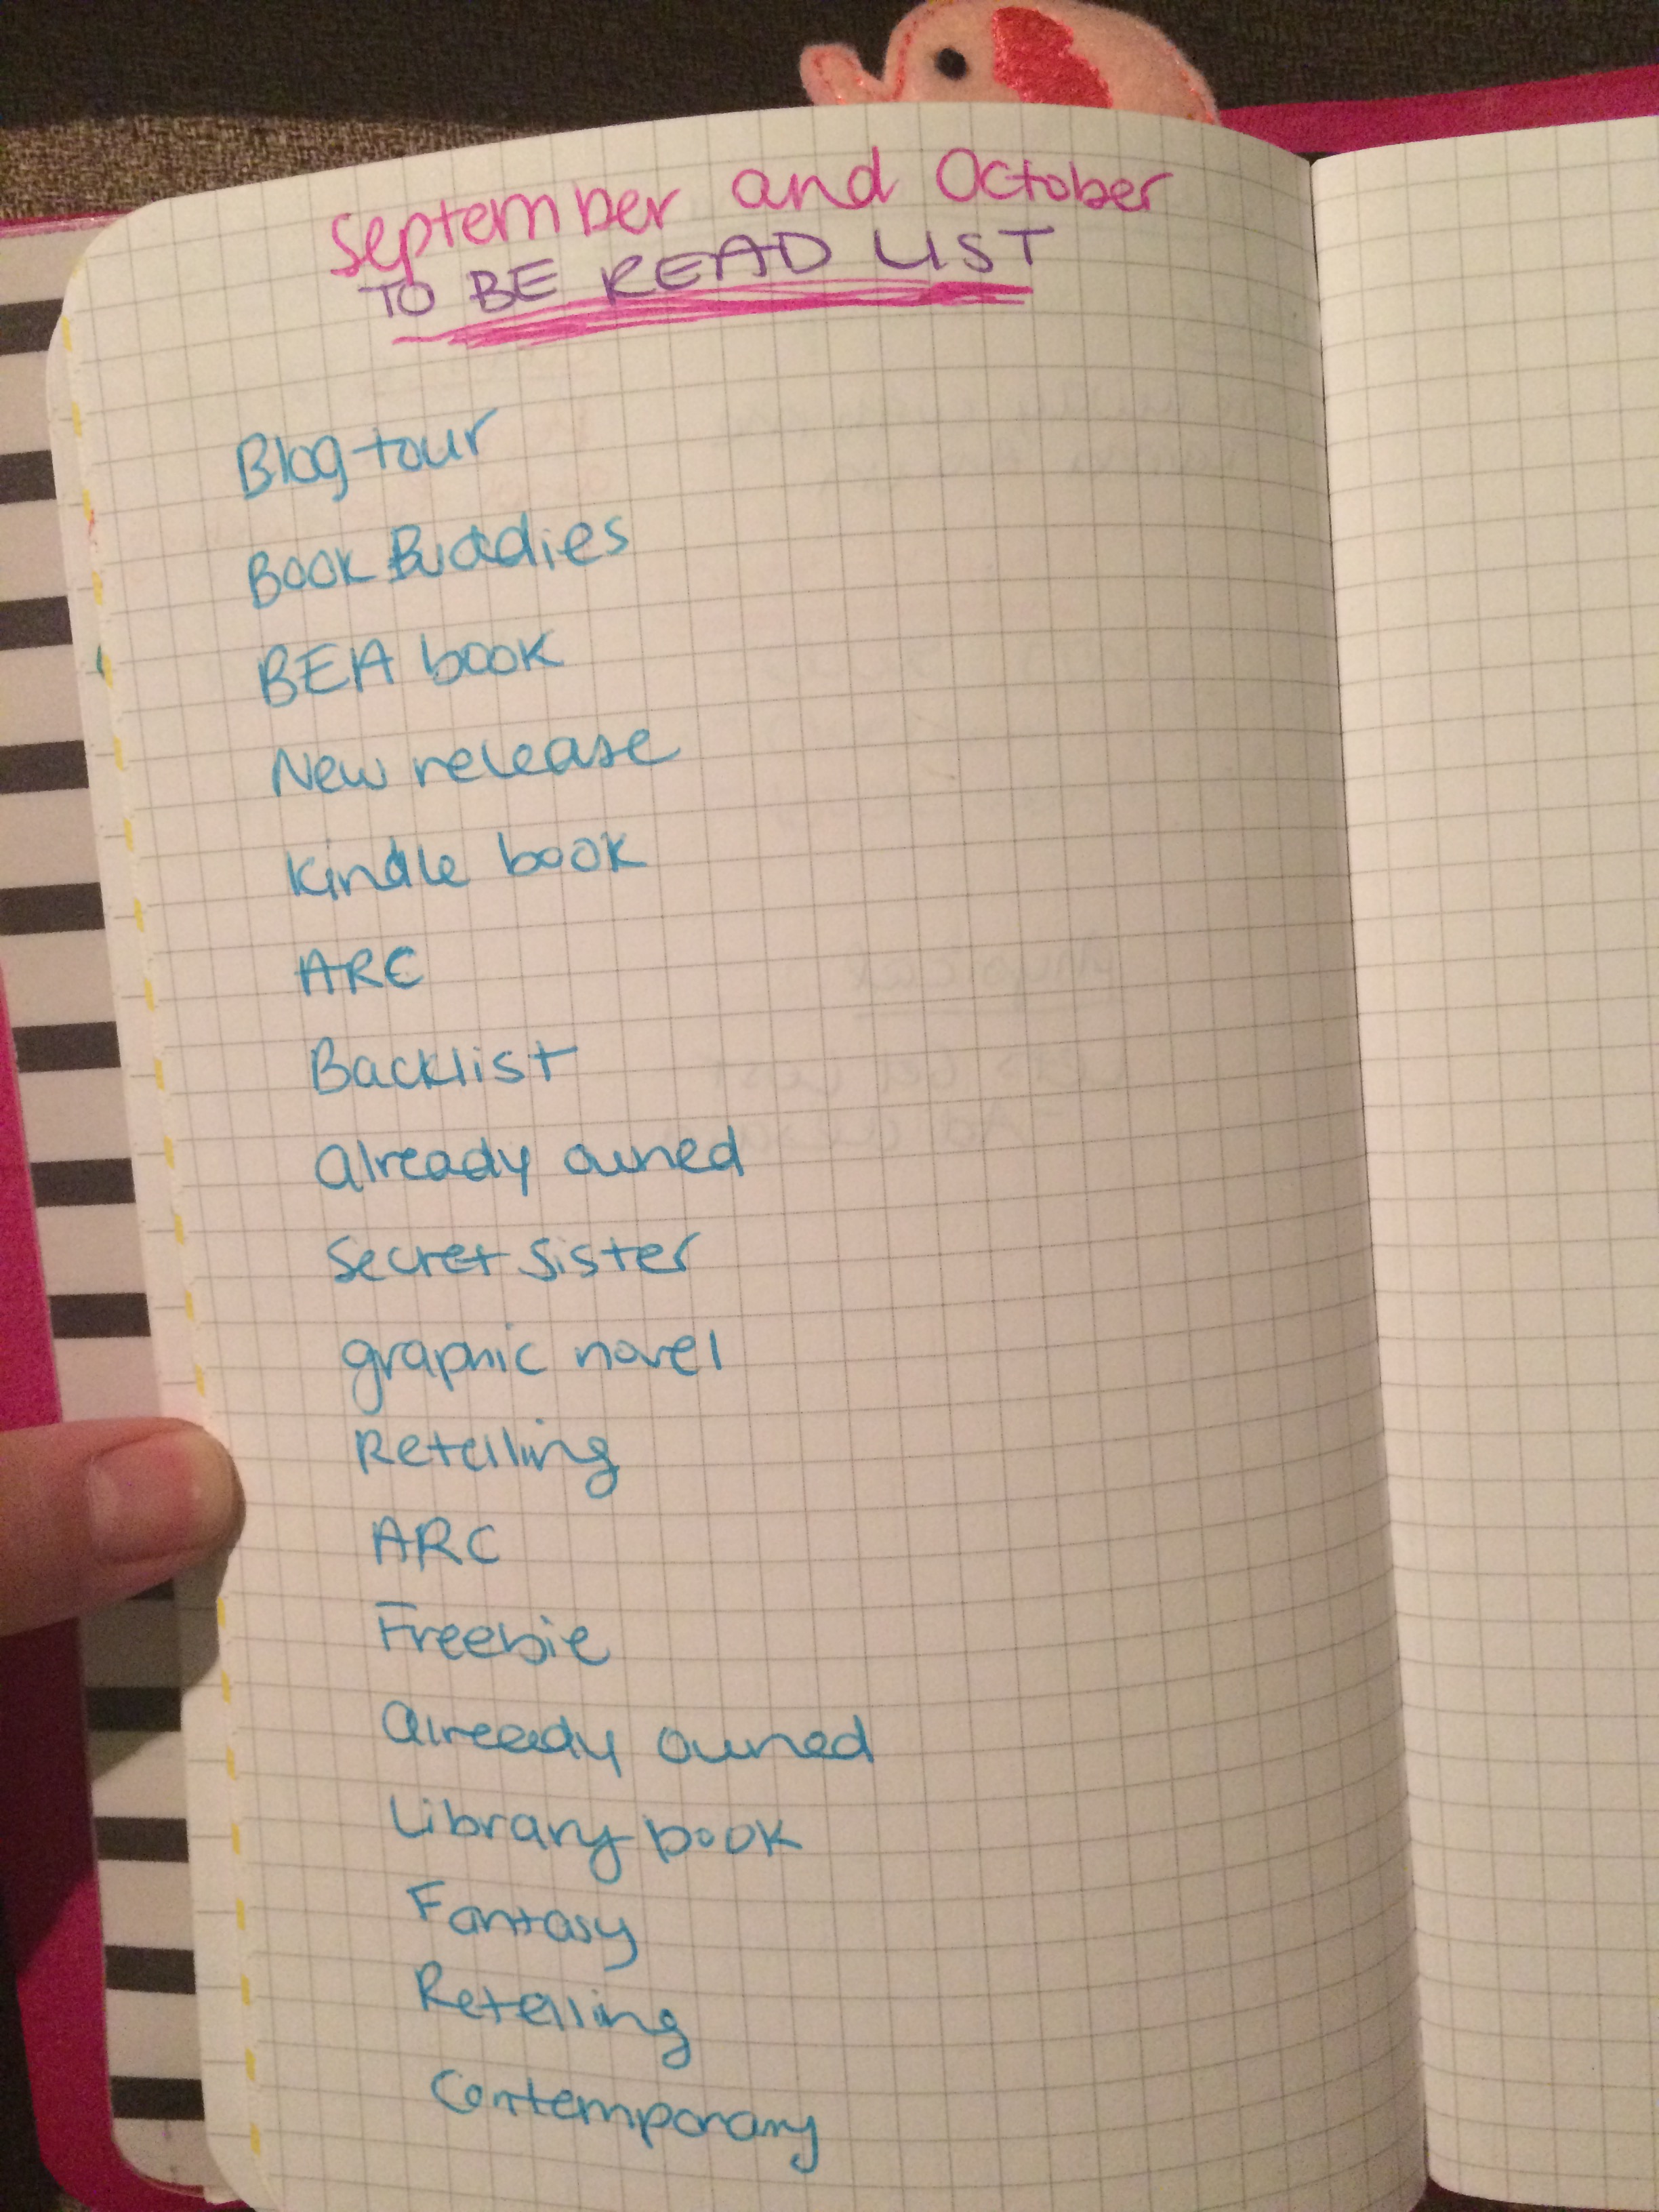 September and October
TO BE READ LIST
Blog tour
Book Buddies
BEA book
New release
Kindle book
ARC
Backlist
Already owned
Secret Sister
graphic novel
Retelling
ARC
Freebie
Already owned
Library book
Fantasy
Retelling
Contemporary